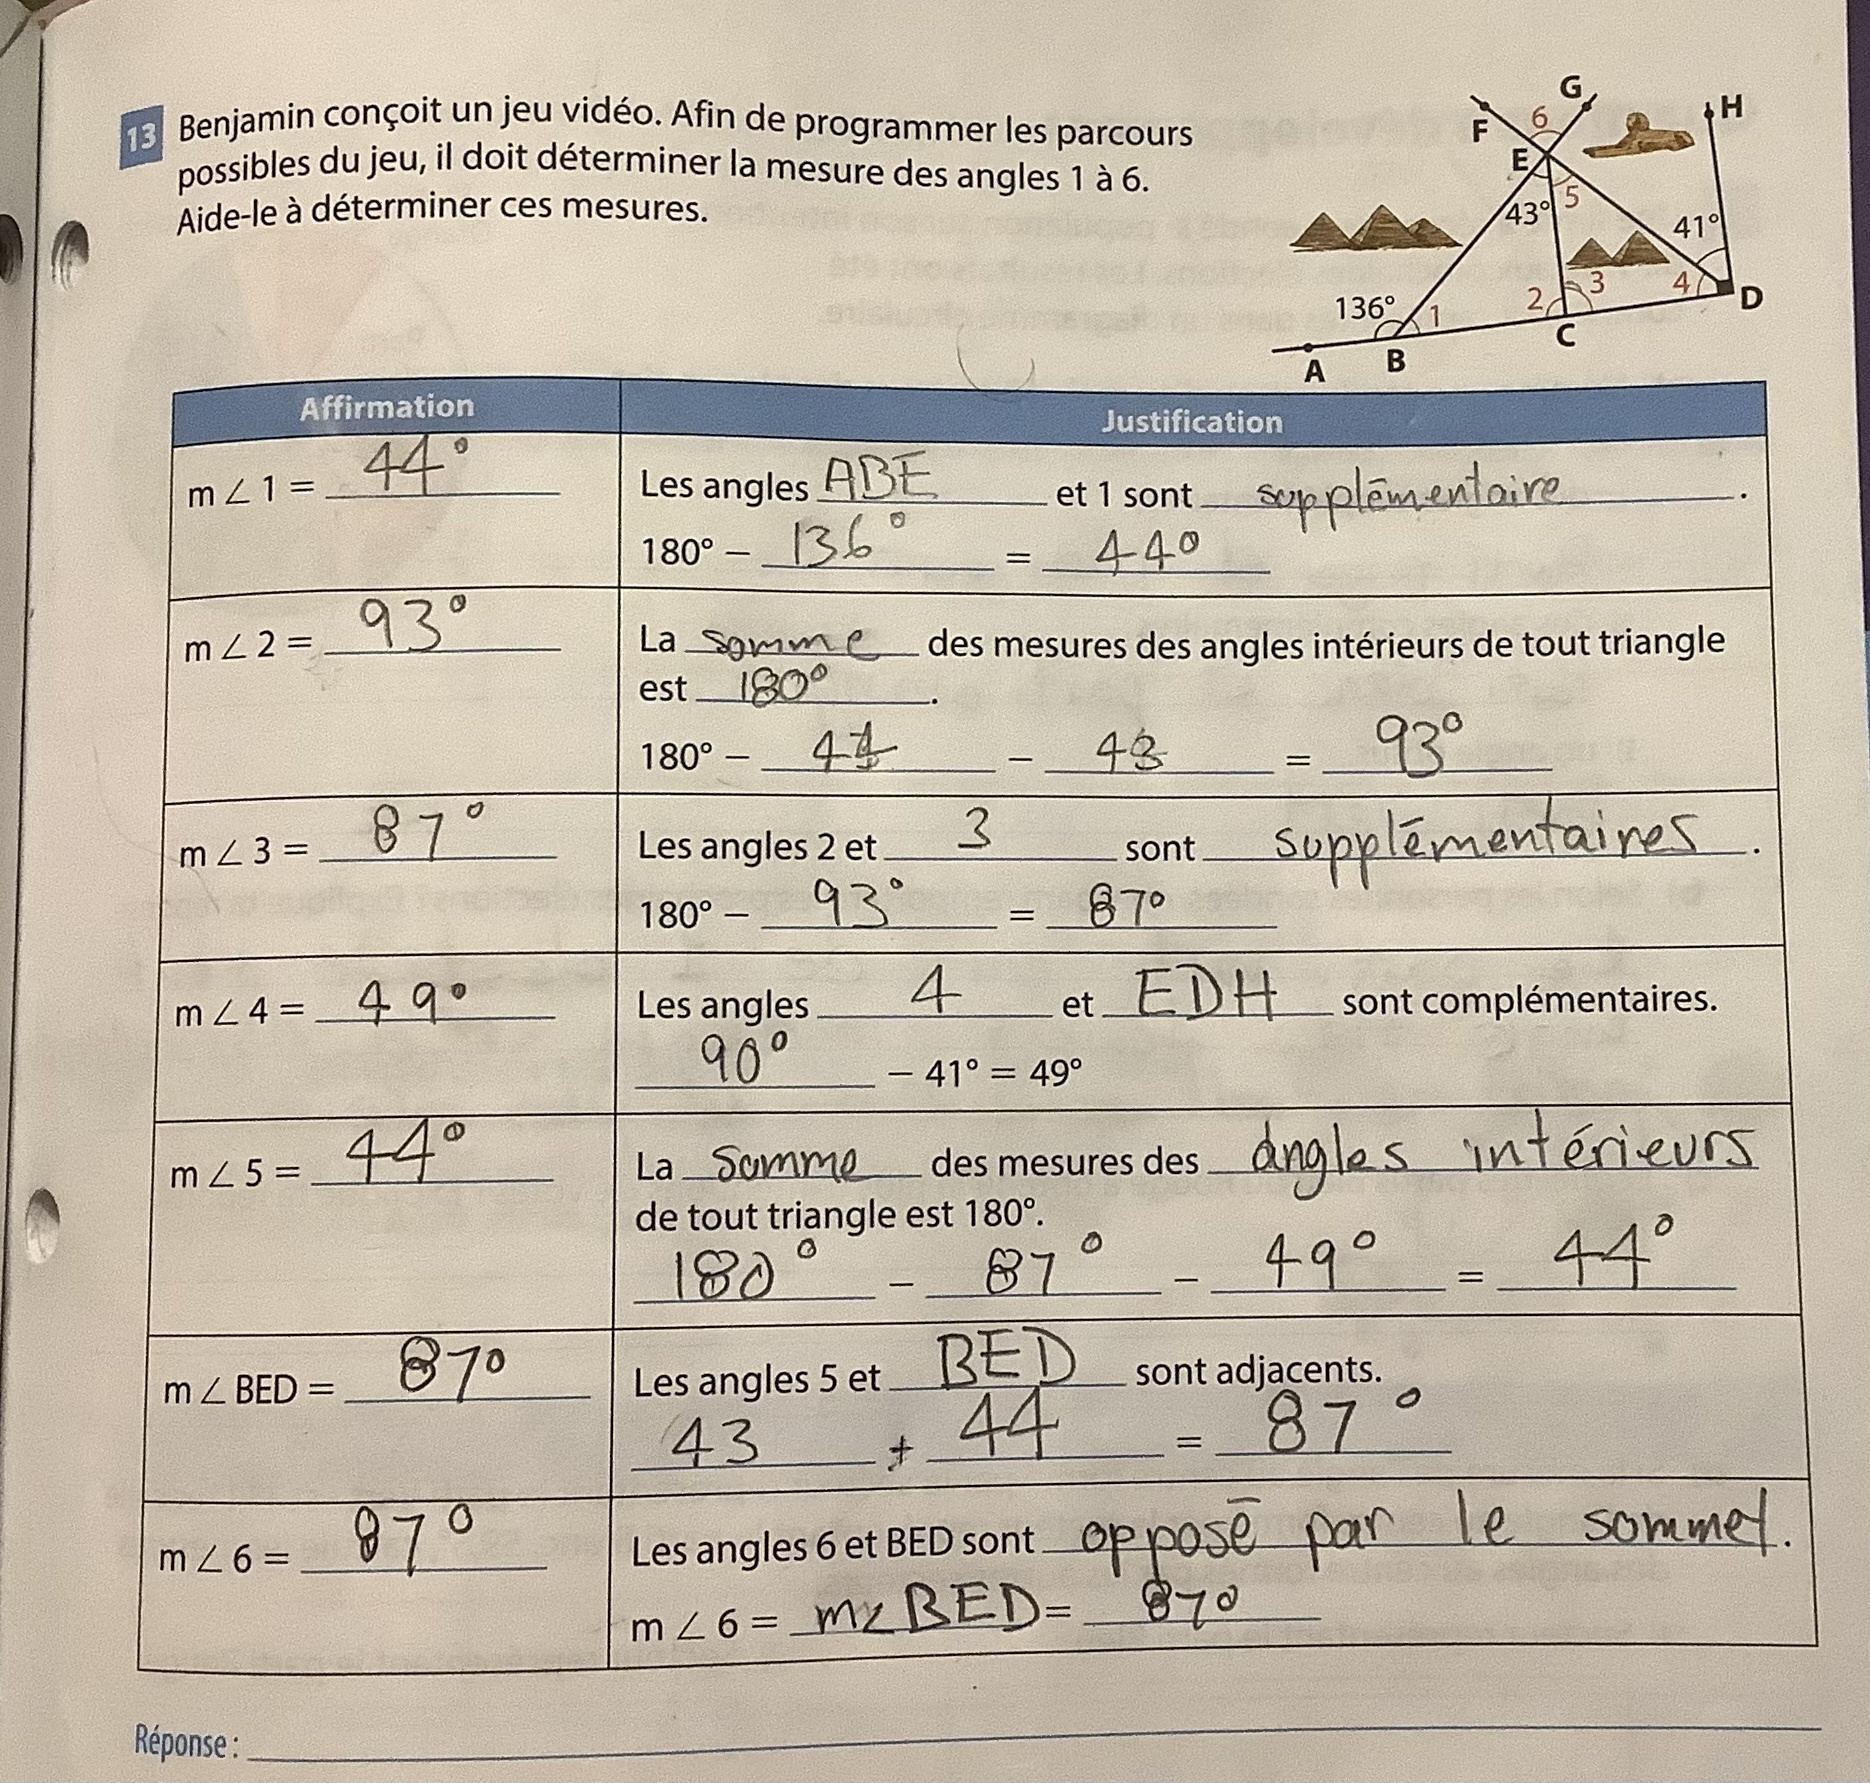 13 Benjamin conçoit un jeu vidéo. Afin de programmer les parcours
possibles du jeu, il doit déterminer la mesure des angles 1 à 6.
Aide-le à déterminer ces mesures.
G
H
6
F
E
5
43°
41°
3
4
2
D
136°
1
C
B
A
Affirmation Justification
m∠1 = 44° Les angles ABE et 1 sont supplēmentaire.
180° – 136° = 44°
m∠2 = 93° La somme des mesures des angles intérieurs de tout triangle
est 180°.
180° – 44 – 43 = 93°
m∠3 = 87° Les angles 2 et 3 sont supplēmentaires.
180° – 93° = 87°
m∠4 = 49° Les angles 4 et EDH sont complémentaires.
90° – 41° = 49°
m∠5 = 44° La somme des mesures des angles intérieurs
de tout triangle est 180°.
180° – 87° – 49° = 44°
m∠BED = 87° Les angles 5 et BED sont adjacents.
43 + 44 = 87°
m∠6 = 87° Les angles 6 et BED sont opposē par le sommet.
m∠6 = m∠BED = 87°
Réponse :